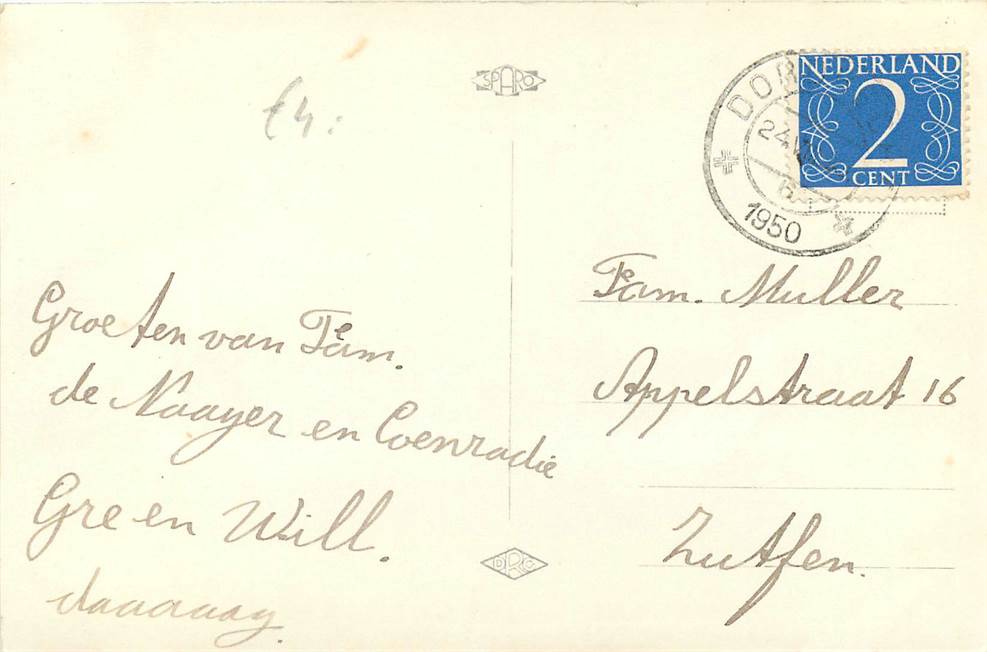 £4:
SPARO
NEDERLAND
2
CENT
DOR
24
1950
Groeten van Fam.
de Naayer en Coenradie
Gre en Will.
daaaaag.
Fam. Muller
Appelstraat 16
Zutfen.